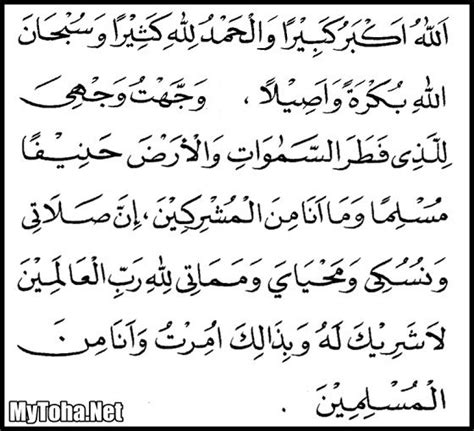 اَللّٰهُ اَكْبَرُ كَبِيْرًا وَالْحَمْدُ لِلّٰهِ كَثِيْرًا وَسُبْحَانَ
اللّٰهِ بُكْرَةً وَاَصِيْلًا ، وَجَّهْتُ وَجْهِيَ
لِلَّذِى فَطَرَ السَّمٰوَاتِ وَالْأَرْضَ حَنِيْفًا
مُسْلِمًا وَمَا اَنَا مِنَ الْمُشْرِكِيْنَ ، اِنَّ صَلَاتِى
وَنُسُكِى وَمَحْيَايَ وَمَمَاتِى لِلّٰهِ رَبِّ الْعَالَمِيْنَ
لَاشَرِيْكَ لَهُ وَبِذَالِكَ اُمِرْتُ وَاَنَا مِنَ
الْمُسْلِمِيْنَ .
MyToha.Net